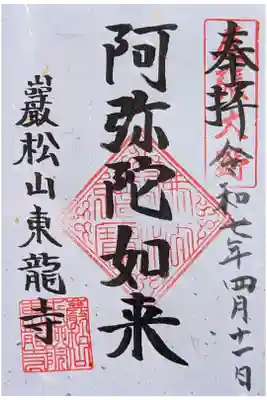 奉拝 令和七年四月十一日
阿弥陀如来
巖松山東龍寺